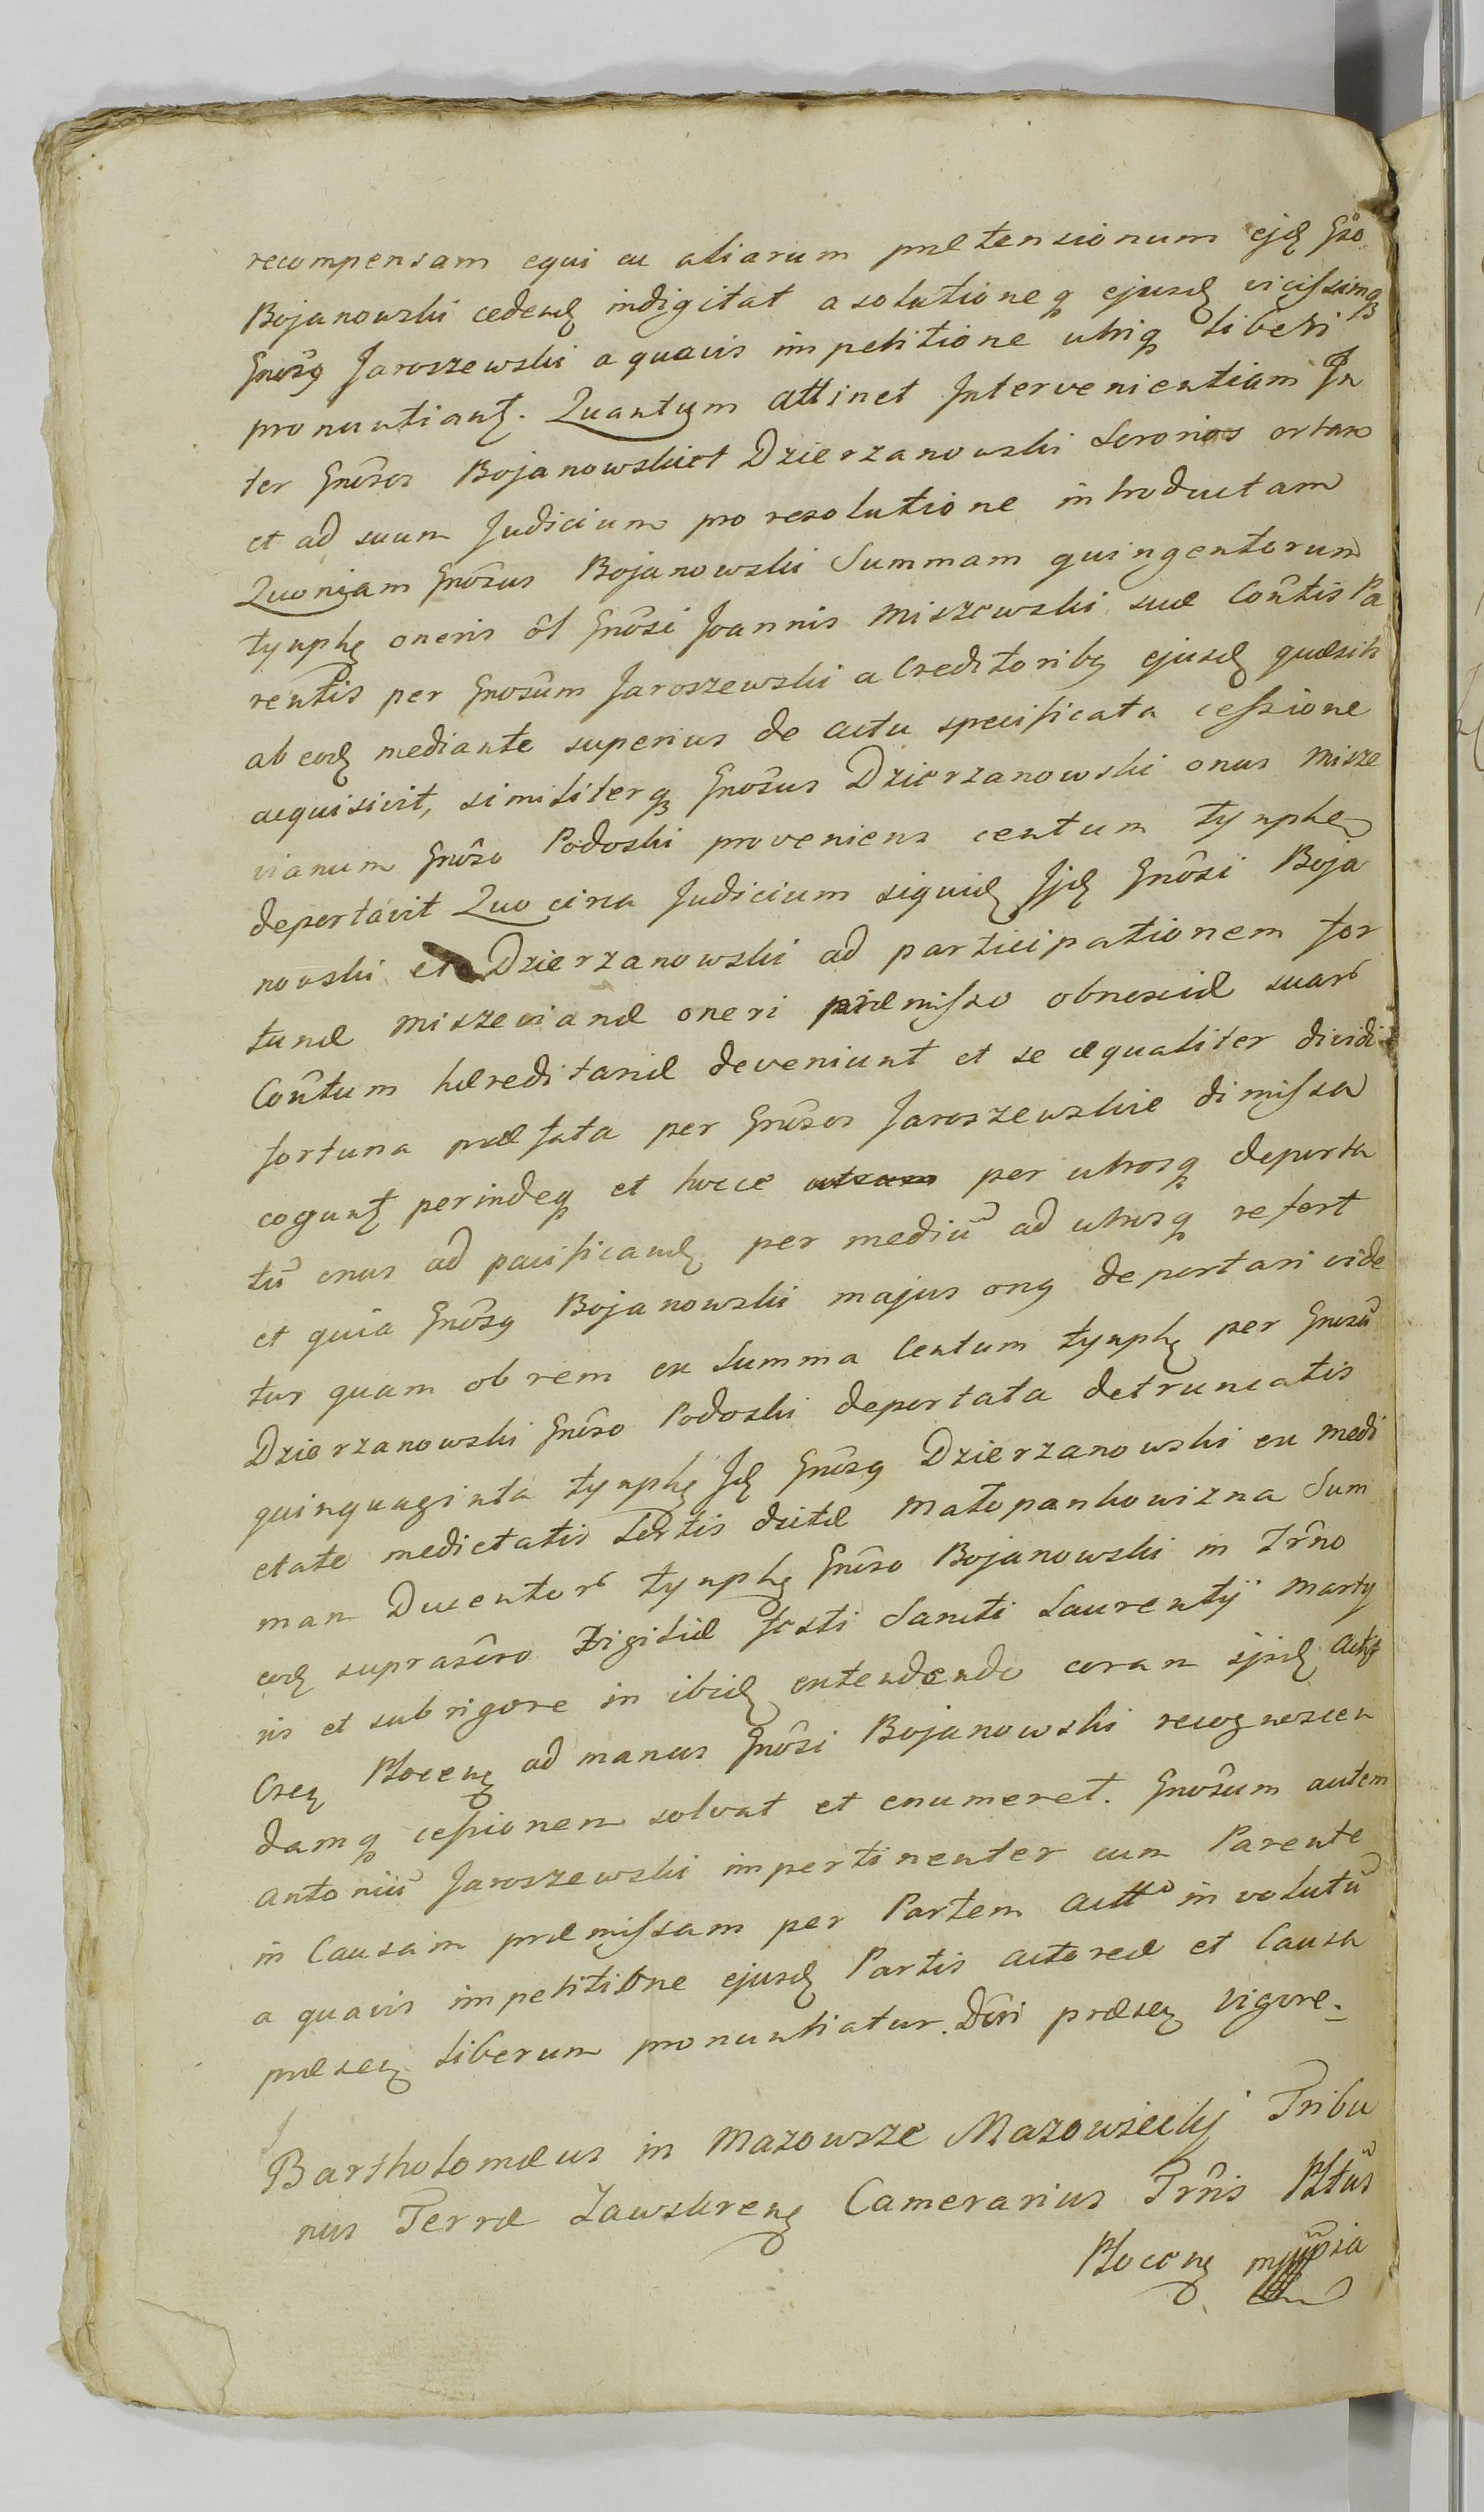 recompensam equi cu aliarum prætensionum ejd Gso
Bojanowski cedend indigitat a solutioneq ejusd vicissimq
Gnosg Jaroszewski a quavis impetitione utriq liberi
pronuntiant. Quantum attinet Intervenientiam In
ter Gnosos Bojanowski et Dzierzanowski Sororios ortam
et ad suum Judicium pro resolutione introductam
Quoniam Gnosus Bojanowski Summam quingentorum
tynph oneris ol Gnosi Joannis Miszewski suæ Contis Pa
rentis per Gnosum Jaroszewski a Creditoribg ejusd quæsiti
ab eod mediante superius de actu specificata cessione
acquisivit, similiterq Gnosus Dzierzanowski onus Misze
vianum Gnoso Podoski proveniens centum tynphen
deportavit Quo circa Judicium siquid Ijd Gnosi Boja
nowski et Dzierzanowski ad participationem for
tunæ Miszevianæ oneri præmisso obnoxiæ suar
Contum hæreditariæ deveniunt et se æqualiter dividi
fortuna præfata per Gnosos Jaroszewskie dimissa
cogunt perindeq et hocce per utrosq deporta
tu onus ad pacificand per mediu ad utrosq refert
et quia Gnosg Bojanowski majus ong deportasi vide
tur quam ob rem ex Summa Centum tynph per Gnosu
Dzierzanowski Gnoso Podoski deportata detruncatis
quinquaginta tynph Id Gnosg Dzierzanowski ex medi
etate medietatis Sortis dictæ Małopankowizna Sum
mam Ducentor tynph Gnoso Bojanowski in Trno
eod suprascro Vigiliæ festi Sancti Laurentij Marty
ris et sub rigore in ibid extendendo coram ijsd Actis
Cren Plocen ad manus Gnosi Bojanowski recognoscen
damq cessionem solvat et enumeret. Gnosum autem
Antoniu Jaroszewski impertinenter cum Parente
in Causam præmissam per Partem Actt involutu
a quavis impetitione ejusd Partis actoreæ et Causa
præsen liberum pronuntiatur. Dcri præsen vigore.
Bartholomæus in Mazowsze Mazowiecky Tribu
nus Terræ Zawskren Camerarius Trris Pltus
Plocen mppia